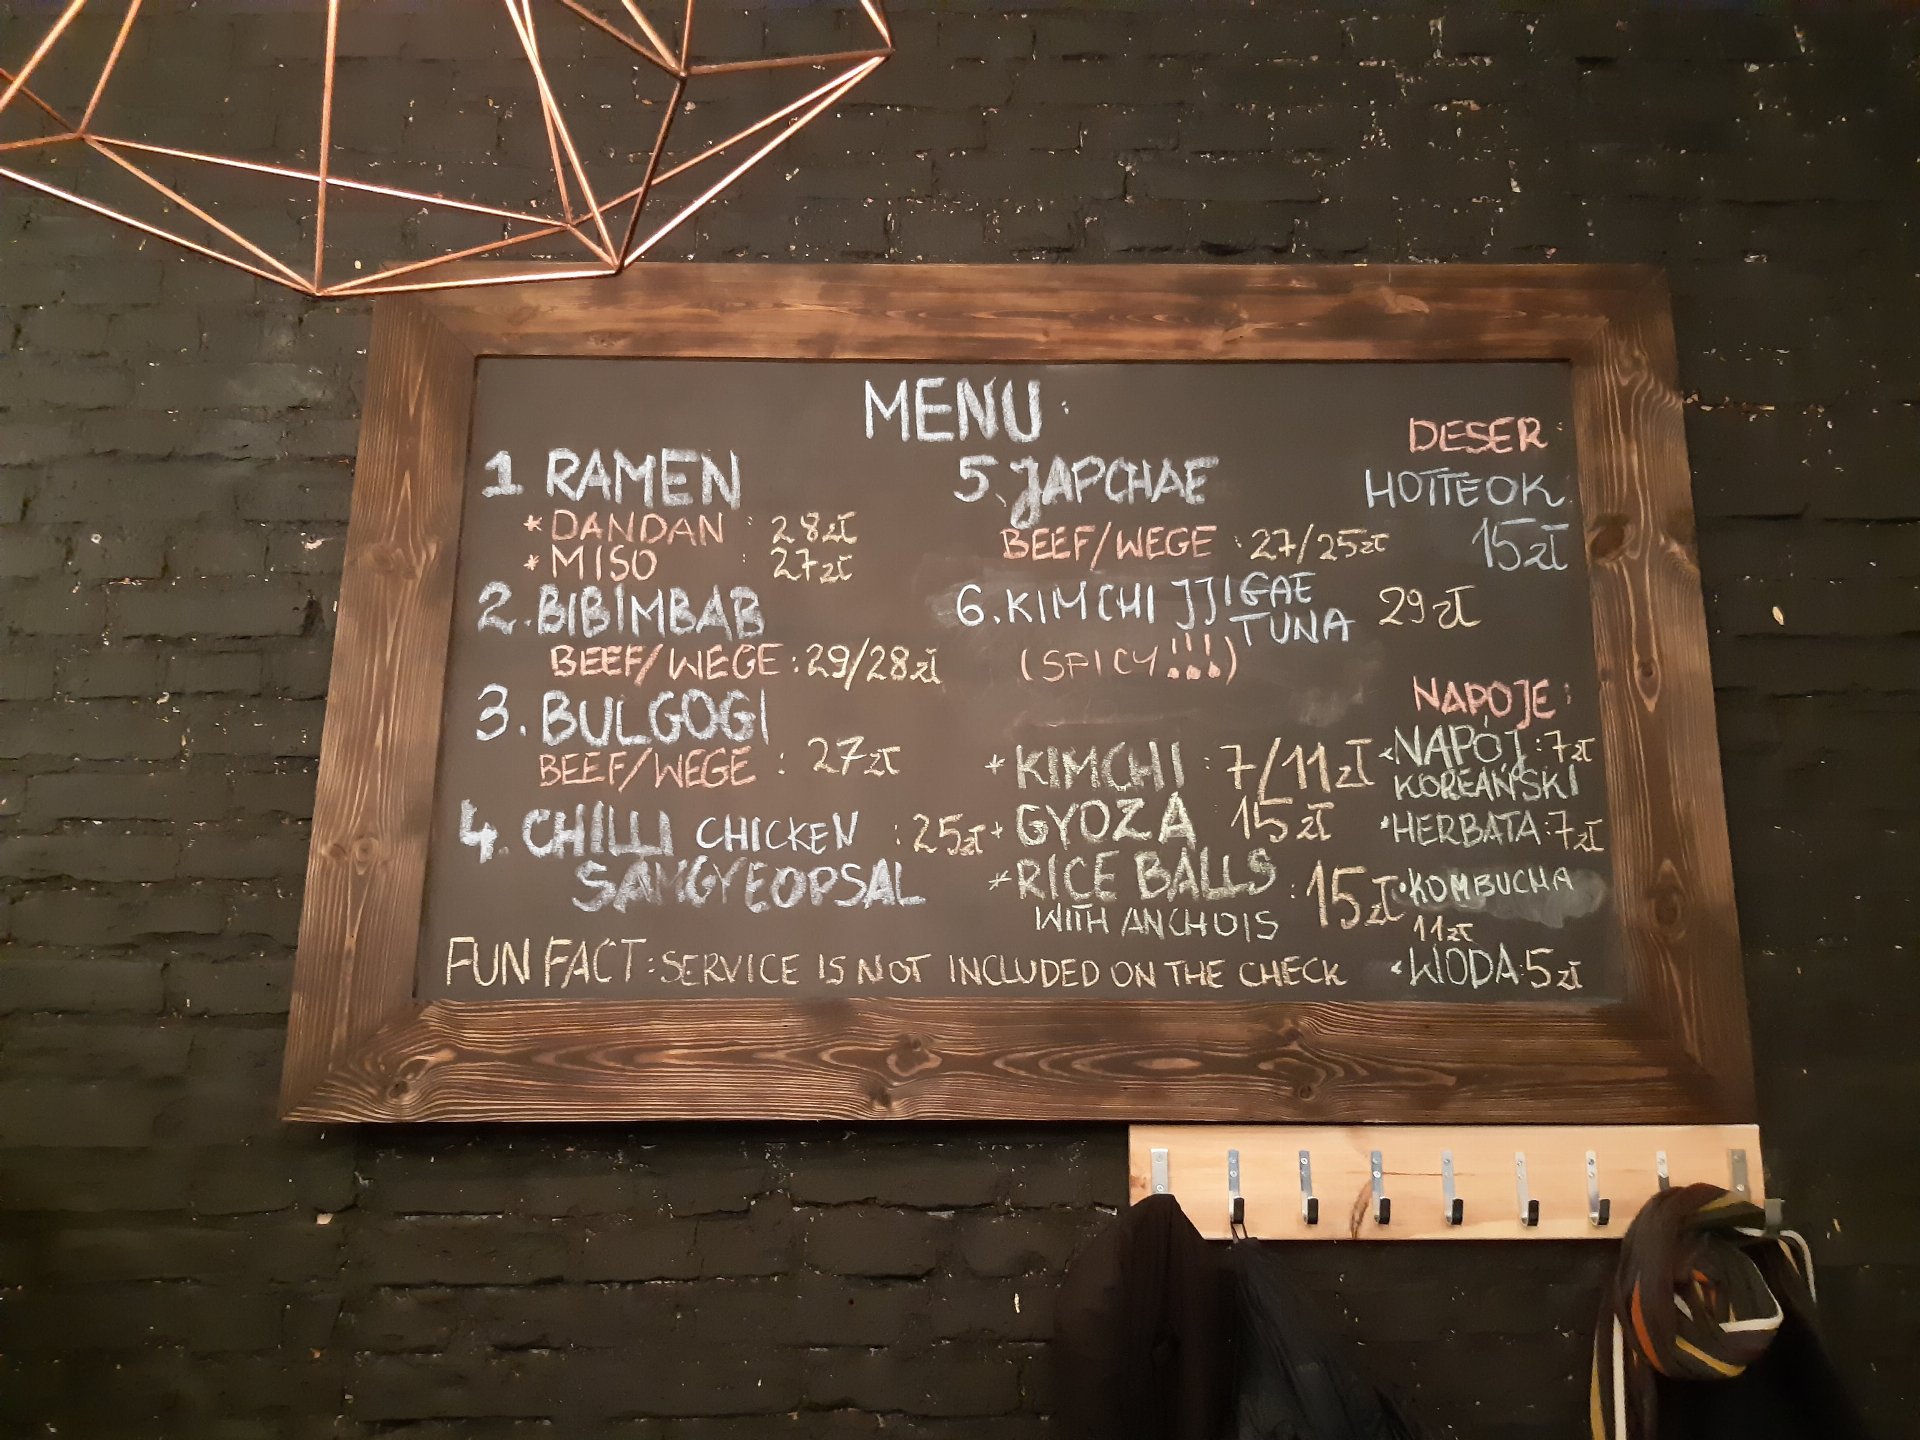 MENU:
1 RAMEN
* DANDAN : 28zł
* MISO : 27zł
2. BIBIMBAB
BEEF/WEGE : 29/28zł
3. BULGOGI
BEEF/WEGE : 27zł
4. CHILLI CHICKEN : 25zł
SAMGYEOPSAL
5. JAPCHAE
BEEF/WEGE : 27/25zł
6. KIMCHI JJIGAE 29zł
TUNA
(SPICY!!!)
* KIMCHI : 7/11zł
* GYOZA : 15zł
* RICE BALLS : 15zł
WITH ANCHOIS
DESER:
HOTTEOK
15zł
NAPOJE:
* NAPÓJ : 7zł
KOREAŃSKI
* HERBATA : 7zł
* KOMBUCHA
11zł
* WODA : 5zł
FUN FACT: SERVICE IS NOT INCLUDED ON THE CHECK